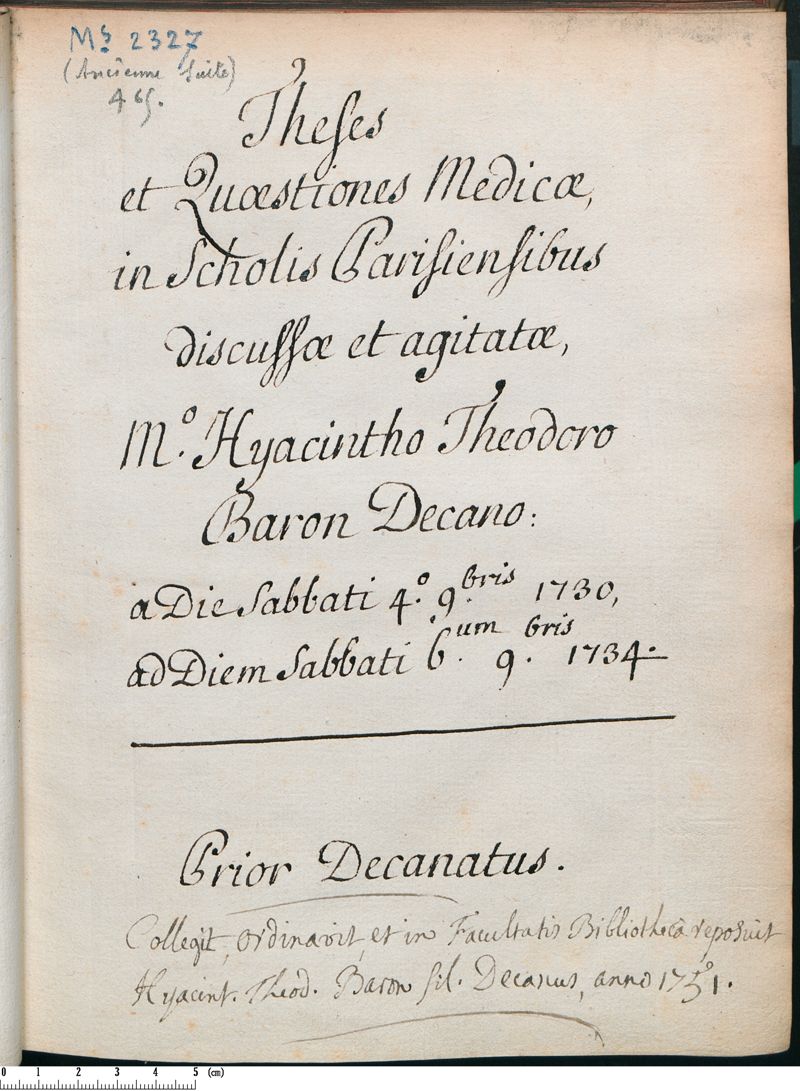 Ms 2327
(Ancienne Suite)
465.
Theses
et Quæstiones Medicæ,
in Scholis Parisiensibus
discussæ et agitatæ,
M.o Hyacintho Theodoro
Baron Decano:
a Die Sabbati 4.o 9.bris 1730,
ad Diem Sabbati 6.um 9.bris 1734.
Prior Decanatus.
Collegit, ordinavit, et in Facultatis Bibliothecâ reposuit
Hyacint. Theod. Baron fil. Decanus, anno 1751.
0 1 2 3 4 5 (cm)